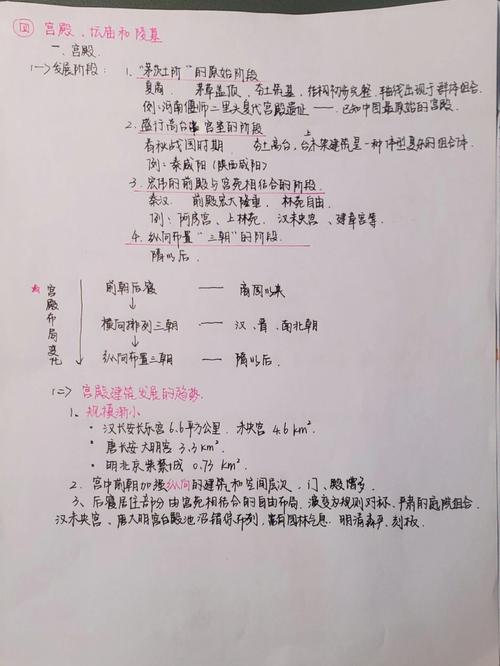 四 宫殿、坛庙和陵墓
一、宫殿.
(一)发展阶段: 1、"茅茨土阶"的原始阶段
夏商. 茅草盖顶、夯土筑基, 结构初步完整, 轴线出现于群体组合.
例:河南偃师二里头夏代宫殿遗址 —— 已知中国最原始的宫殿.
2.盛行高台宫室的阶段
春秋战国时期. 夯土高台,台上木架建筑是一种体型复杂的组合体.
例:秦咸阳(陕西咸阳)
3.宏伟的前殿与宫苑相结合的阶段.
秦汉. 前殿宏大隆重, 林苑自由.
例:阿房宫、上林苑. 汉未央宫、建章宫等.
4.纵向布置"三朝"的阶段.
隋以后.
宫殿布局变化
前朝后寝 —— 商周以来
横向排列三朝 —— 汉、晋、南北朝
纵向布置三朝 —— 隋以后.
(二)宫殿建筑发展的趋势.
1、规模渐小
• 汉长安长乐宫 6.6平方公里. 未央宫 4.6 km².
• 唐长安大明宫 3.3 km².
• 明北京紫禁城 0.73 km².
2. 宫中前朝加强纵向的建筑和空间层次, 门、殿增多.
3、后寝居住部分由宫苑相结合的自由布局. 演变为规则对称、严肃的庭院组合.
汉未央宫、唐大明宫台殿池沼错综布列,富有园林气息. 明清森严、刻板.